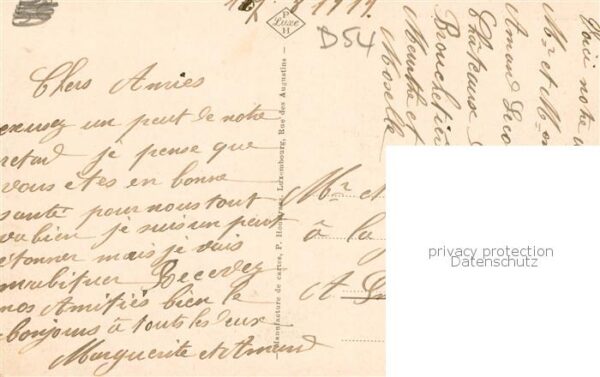 1919
P
Luxe
H
D54
Chers Amies
excusez un peut de notre
retard je pense que
vous etes en bonne
santé pour nous tout
va bien je suis un peut
étonner mais je vais
mabituer Recevez
nos Amitiés bien le
bonjours à touts les deux
Marguerite et Amand
Manufacture de cartes, P. Luxembourg, Rue des Augustins
Voici notre
Mr et M
Amand
Château
Meurthe et
Moselle
Mr et
à la
A
privacy protection
Datenschutz